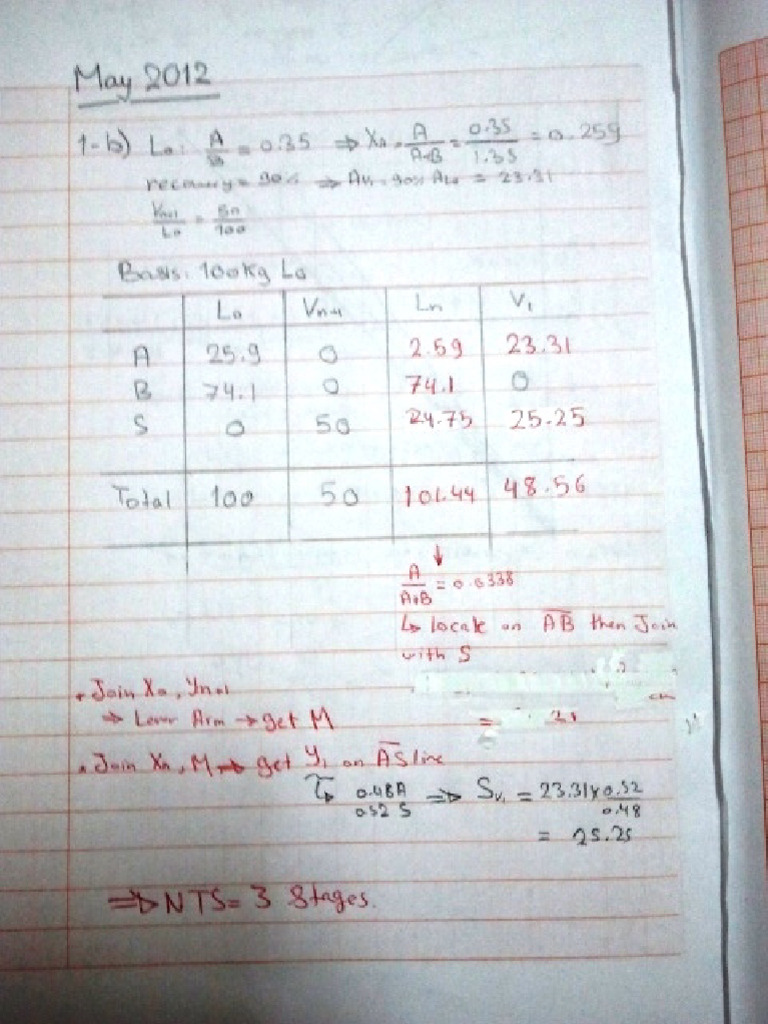 May 2012
1-b) L₀: A/B = 0.35 ⇒ X₀ = A/A+B = 0.35/1.35 = 0.259
recovery = 90% ⇒ AV₁ = 90% AL₀ = 23.31
Vn+1/L₀ = 50/100
Basis: 100Kg L₀
L₀ Vn+1 Ln V₁
A 25.9 0 2.59 23.31
B 74.1 0 74.1 0
S 0 50 24.75 25.25
Total 100 50 101.44 48.56
↓
A/A+B = 0.0338
↳ locate on AB then Join
with S
• Join X₀, Yn+1
⇒ Lever Arm → get M =
• Join Xn, M → get Y₁ on AS line
↳ 0.48A/0.52 S ⇒ Sv₁ = 23.31 x 0.52/0.48
= 25.25
⇒ NTS = 3 Stages.